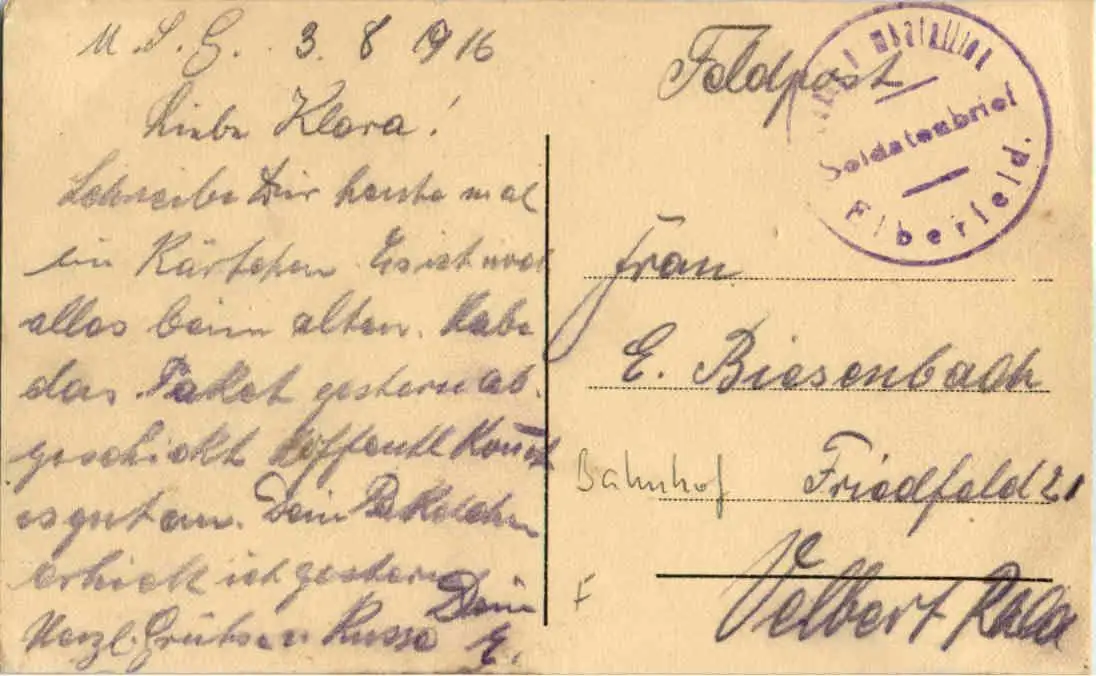 M. S. G. 3. 8 1916
Liebe Klara!
Schreibe Dir heute mal
ein Kärtchen. Es ist noch
alles beim alten. Habe
das Paket gestern ab-
geschickt Hoffentl. kommt
es gut an. Dein Paketchen
erhielt ich gestern
Herzl. Grüße u Küsse Dein
E.
Feldpost
bataillon
Soldatenbrief
Elberfeld.
Frau
E. Biesenbach
Bahnhof Friedfeld 21
Velbert Rhld